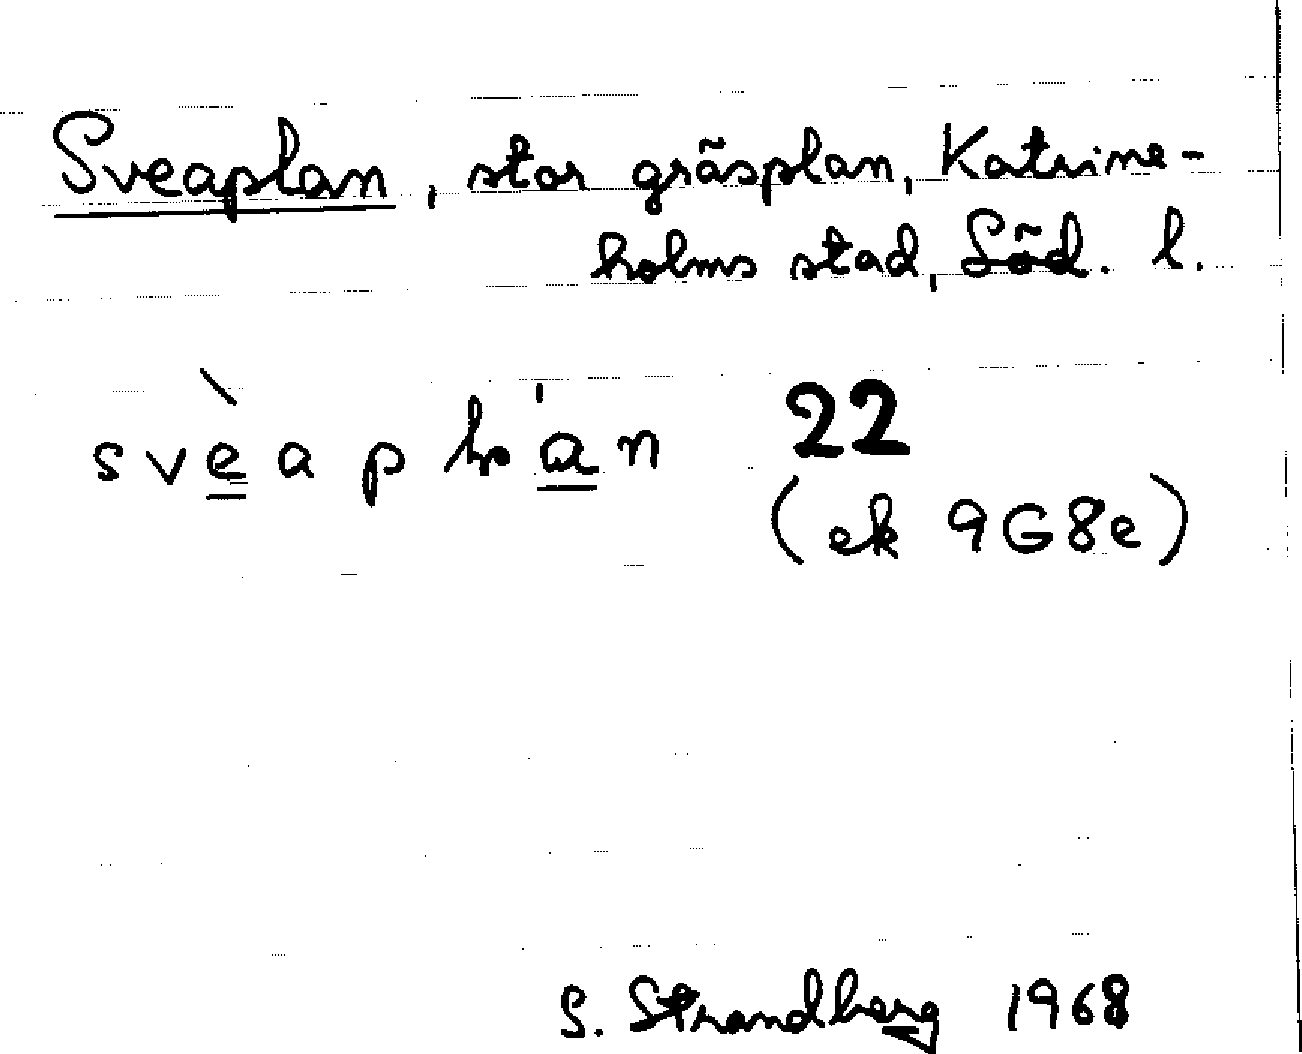 Sveaplan, stor gräsplan, Katrine-
holms stad, Söd. l.
svèaplán 22
(ek 9G8e)
S. Strandberg 1968